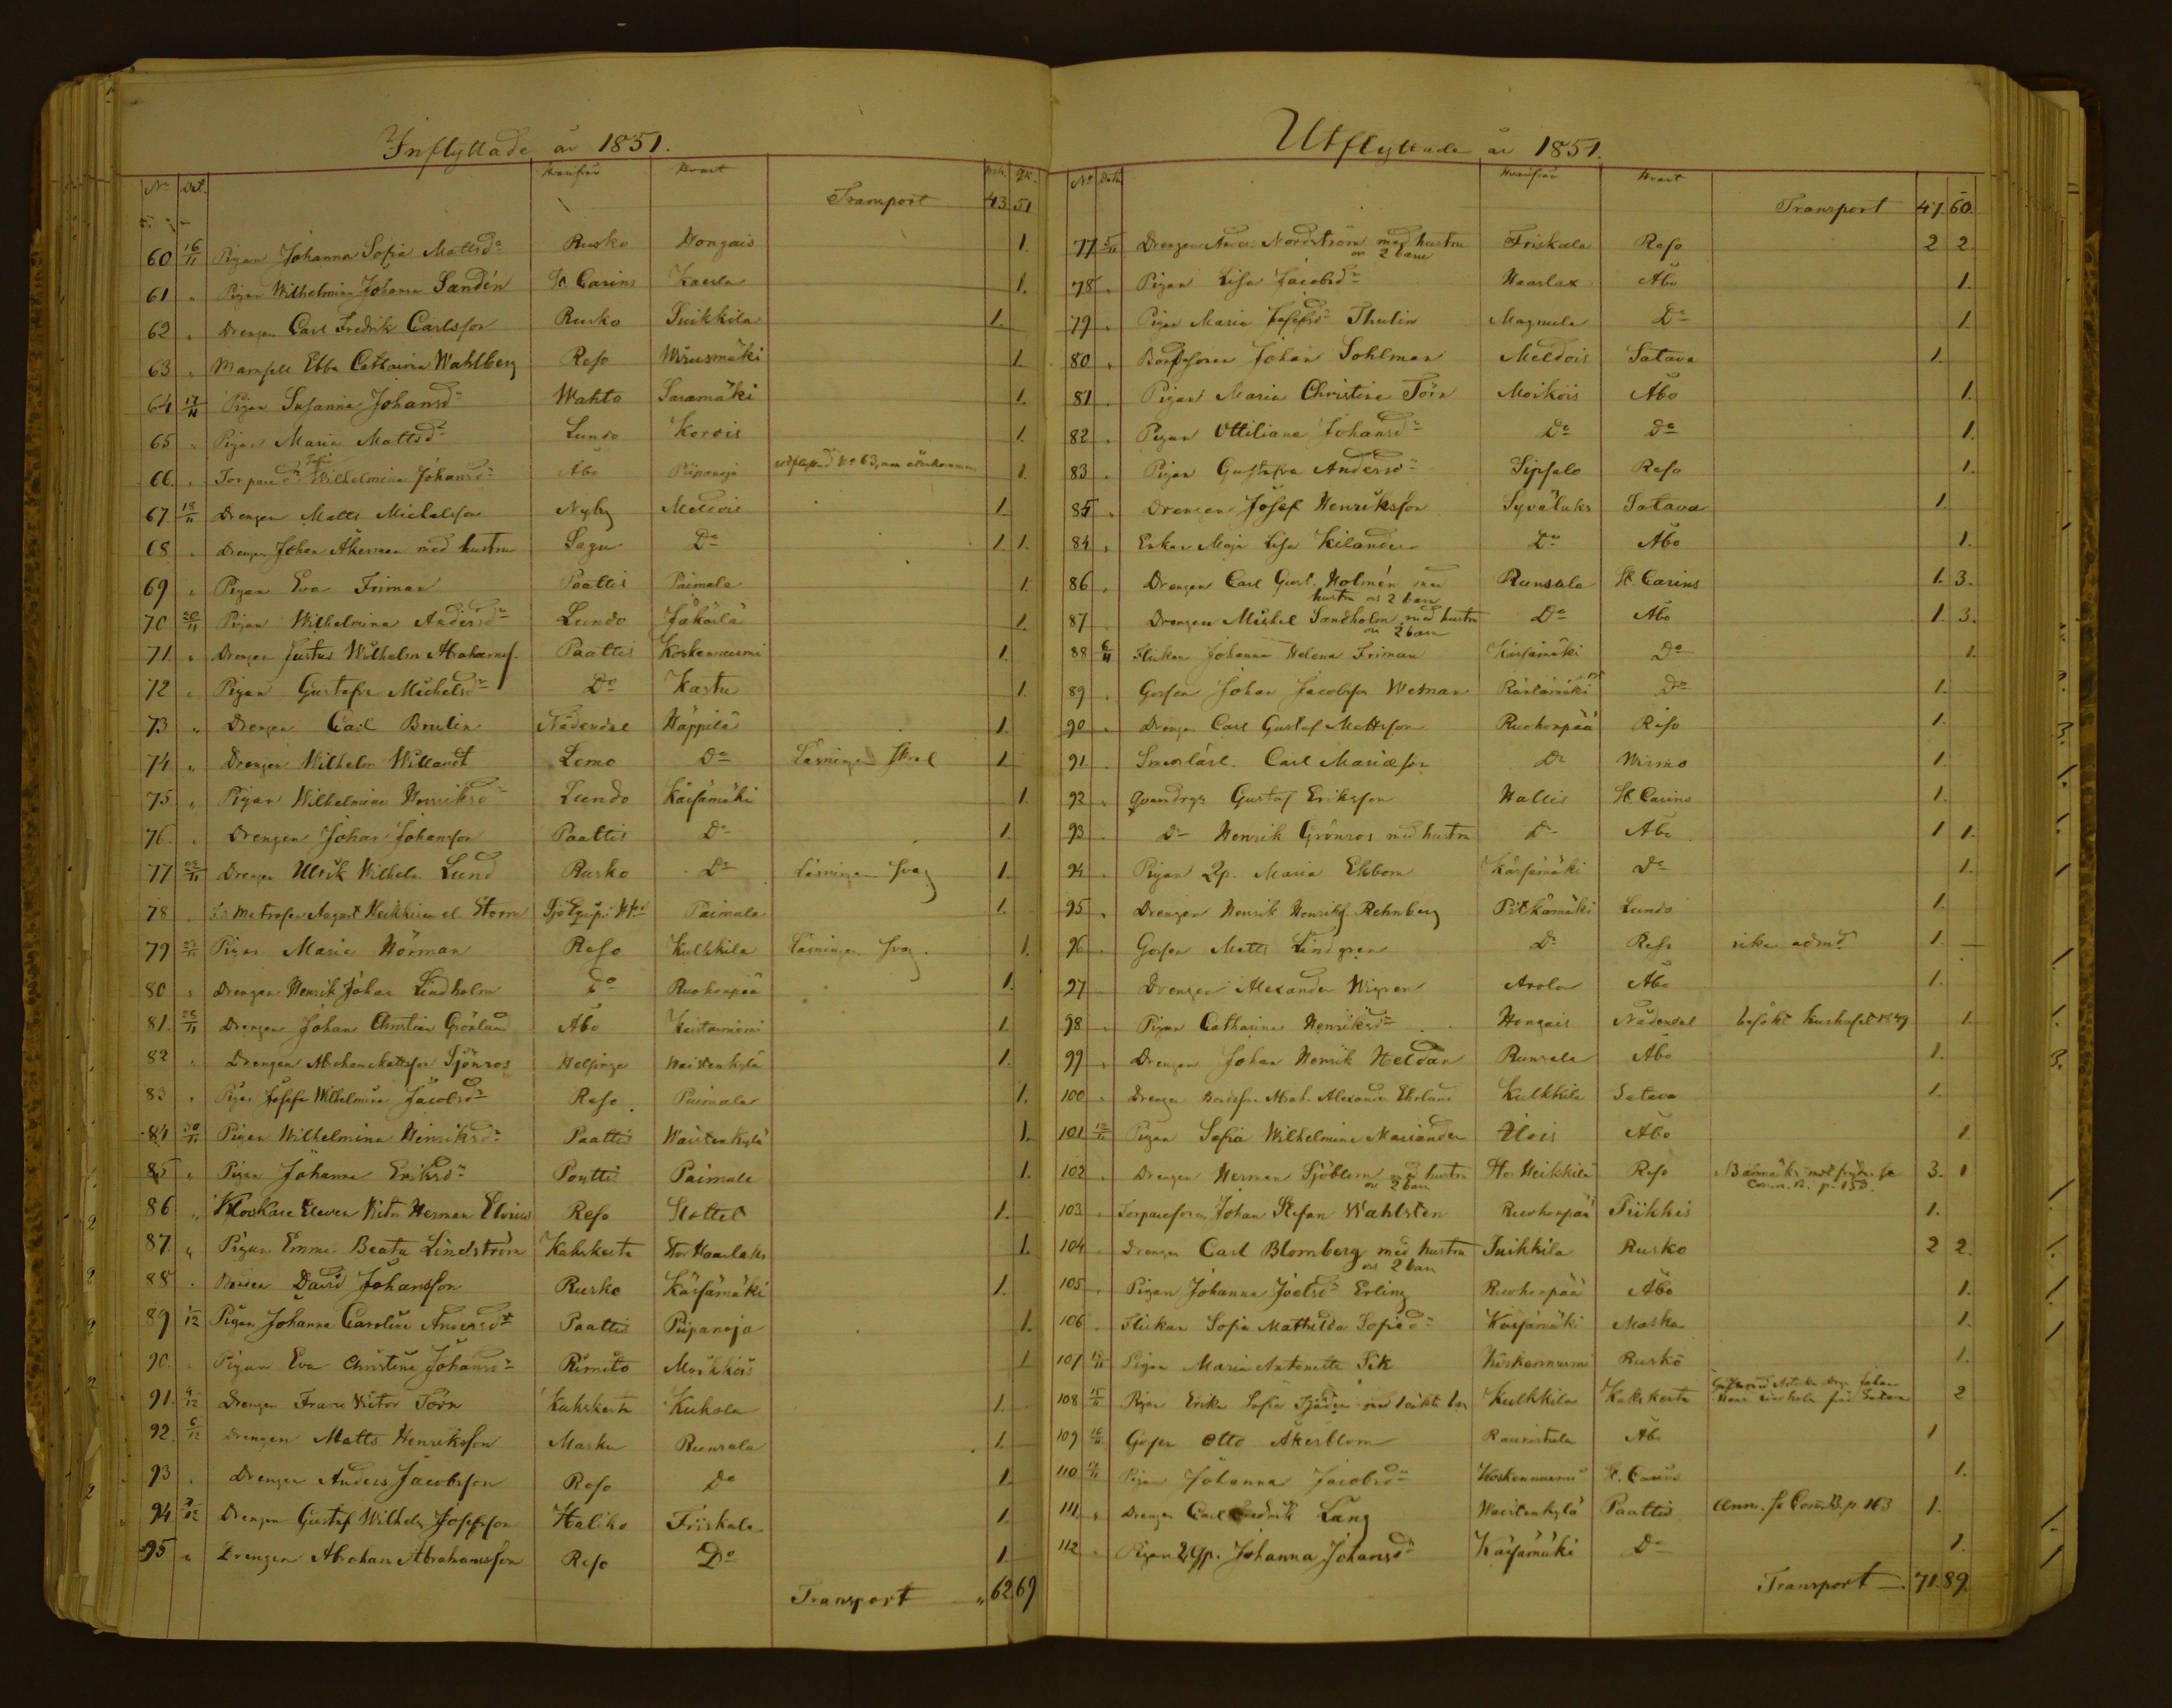 Inflyttade år 1851.
No Dat. Hvarifrån Hvart Mk. Qk.
Transport 43 51
60 16/11 Pigan Johanna Sofia Mattsdr Rusko Hongais 1.
61 " Pigan Wilhelmina Johanna Sandén St Carins Kaerla 1.
62 " Drengen Carl Fredrik Carlsson Rusko Suikkila 1.
63 " Mamsell Ebba Catharina Wahlberg Reso Wiiusmäki 1
64 17/11 Pigan Susanna Johansdr Wahto Saramäki 1.
65 " Pigan Maria Mattsdr Lundo Korois 1.
66 " Torparedr Sofia Wilhelmina Johansdr Åbo Piipanoja utflyttad No 63, nu återkommen 1.
67 18/11 Drengen Matts Michelsson Nyby Meldois 1
68 " Drengen Johan Åkerman med hustru Sagu Do 1 1.
69 " Pigan Eva Friman Paattis Paimala 1.
70 20/11 Pigan Wilhelmina Andersdr Lundo Jäkärlä 1
71. " Drengen Justus Wilhelm Abrahamss. Paattis Koskennurmi 1.
72 " Pigan Gustafva Michelsdr Do Kastu 1.
73 " Drengen Carl Brulin Nådendal Häppilä 1.
74 " Drengen Wilhelm Willandt Lemo Do Läsningen skral 1
75 " Pigan Wilhelmina Henriksdr Lundo Kärsämäki 1.
76. " Drengen Johan Johansson Paattis Do 1.
77 22/11 Drengen Ulrik Wilhelm Lund Rusko Do Läsningen svag 1.
78 Matrosen August Heikkinen el. Storm Sjö Equip. Paimala 1.
79 23/11 Pigan Maria Hörman Reso Kulkkila Läsningen svag. 1.
80 " Drengen Henrik Johan Lindholm Do Ruohonpää 1.
81. 25/11 Drengen Johan Christian Grönlund Åbo Kaistarniemi 1.
82 " Drengen Abraham Mattsson Sjönros Helsinge Waistenkylä 1.
83 " Pigan Josefa Wilhelmina Jacobsdr Reso Paimala 1.
84 30/11 Pigan Wilhelmina Henriksdr Paattis Waistenkylä 1.
85 " Pigan Johanna Eriksdr Pöytis Paimala 1.
86 " Klockare Eleven Victor Herman Elvius Reso Slottet 1.
87. " Pigan Emma Beata Lindström Kakskerta Stor Haarlaks 1.
88 " David Johansson Rusko Kärsämäki 1.
89 1/12 Pigan Johanna Carolina Andersdr Paattis Piipanoja 1.
90. " Pigan Eva Christina Johansdr Rimito Moikkois 1
91. 4/12 Drengen Frans Victor Törn Kakskerta Kuhala 1.
92. 6/12 Drengen Matts Henriksson Masku Runsala 1.
93 " Drengen Anders Jacobsson Reso Do 1.
94 9/12 Drengen Gustaf Wilhelm Josefsson Haliko Friskala 1.
95 " Drengen Abraham Abrahamsson Reso Do 1
Transport " 62 69
Utflyttade år 1851.
No Datum Hvarifrån Hvart
Transport 47. 60.
77 5/11 Drengen Anders Nordström med hustru o 2 barn Friskala Reso 2 2
78 " Pigan Lisa Jacobsdr Haarlax Åbo 1.
79 " Pigan Maria Josefsdr Thulin Magnula Do 1
80 " Bondesonen Johan Sohlman Meldois Satava 1.
81 " Pigan Maria Christina Törn Moikois Åbo 1.
82 " Pigan Ottiliana Johansdr Do Do 1.
83 " Pigan Gustafva Andersdr Sipsalo Reso 1.
85 " Drengen Josef Henriksson Syväluks Satava 1.
84 " Enkan Maja Lisa Kilander Do Åbo 1.
86 " Drengen Carl Gust. Holmén med hustru o 2 barn Runsala St. Carins 1. 3.
87 " Drengen Michel Sandholm med hustru o 2 barn Do Åbo 1. 3.
88 6/11 Flickan Johanna Helena Friman Kärsämäki Do 1.
89 " Gossen Johan Jacobsson Wetman Räntämäki Do 1.
90 " Drengen Carl Gustaf Mattsson Ruohonpää Reso 1.
91 " Smedslärl. Carl Mariæson Do Wirmo 1.
92 " Qvarndrgn Gustaf Eriksson Hallis St. Carins 1.
93 " Do Henrik Grönros med hustru Do Åbo 1 1.
94 " Pigan 2p. Maria Ekbom Kärsämäki Do 1.
95 " Drengen Henrik Henrikss. Rehnberg Pitkämäki Lundo 1.
96 " Gossen Matts Lindgren Do Reso icke admd. 1. —
97 Drengen Alexander Wigren Arola Åbo 1.
98 " Pigan Catharina Henriksdr Hongais Nådendal besökt hushålet 1849 1.
99 " Drengen Johan Henrik Heldan Runsala Åbo 1.
100 " Drengen Bondeson Abrah. Alexander Ekelund Kulkkila Satava 1.
101 12/11 Pigan Sofia Wilhelmina Mariander Ilois Åbo 1
102 " Drengen Herman Sjöblom med hustru o 2 barn St. Heikkilä Reso Comm. B. p. 153. 3. 1
103 " Torpareson Johan Stefan Wahlsten Ruohonpää Piikkis 1.
104 " Drengen Carl Blomberg med hustru o 2 barn Suikkila Rusko 2 2.
105 " Pigan Johanna Joelsdr Erling Ruohonpää Åbo 1.
106 " Flickan Sofia Mathilda Sofiædr Kärsämäki Masku 1.
107 13/11 Pigan Maria Antonetta Sik Koskennurmi Rusko 1.
108 15/11 Pigan Erika Sofia Sjödin med 1 oäkta barn Kulkkila Kakskerta 2
109 16/11 Gossen Otto Åkerblom Raunistula Åbo 1
110 17/11 Pigan Johanna Jacobsdr Koskennurmi St. Carins 1.
111. " Drengen Carl Fredrik Lång Waistenkylä Paattis Anm. se Com.B. p. 163 1.
112 " Pigan 2gp. Johanna Johansdr Kärsämäki Do 1.
Transport — 71. 89.